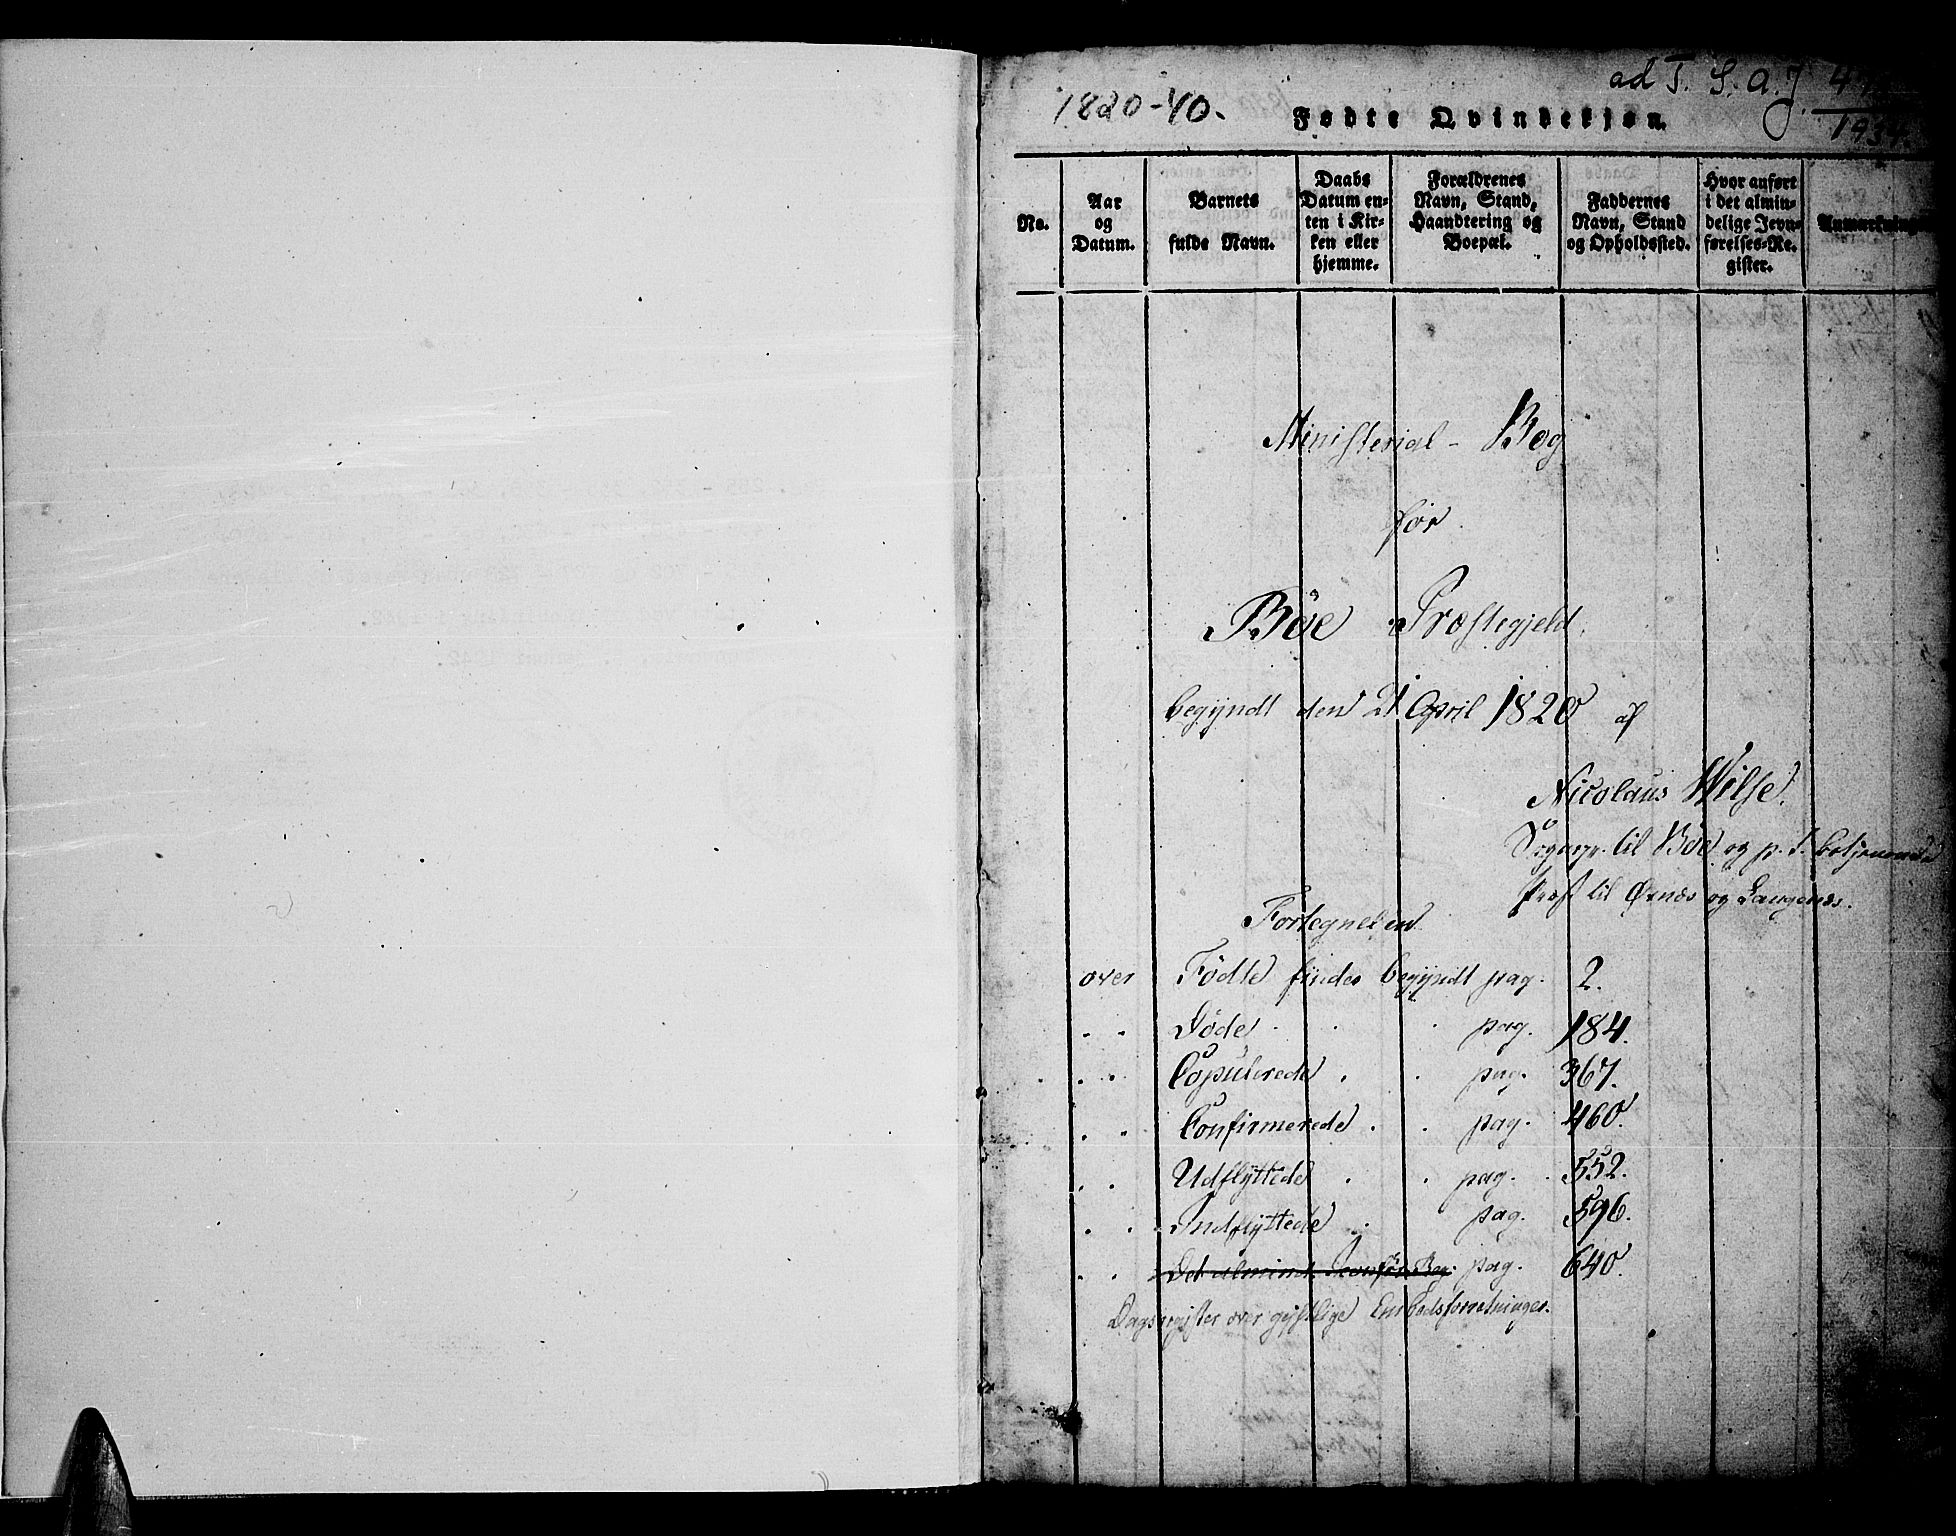 1820-40.
ad T. S. a. J. 4
1934.
Fødte Qvindekjøn.
No.
Aar
og
Datum.
Barnets
fulde Navn.
Daabs
Datum en-
ten i Kir-
ken eller
hjemme.
Forældrenes
Navn, Stand,
Haandtering og
Boepæl.
Faddernes
Navn, Stand
og Opholdssted.
Hvor anført
i det almin-
delige Jevn-
førelses-Re-
gister.
Anmærkninger
Ministerial-Bog
for
Böe Præstegjeld.
begyndt den 21 April 1820 af
Nicolaus Wilse.
Sognepr. til Böe og p. t. betjenende
Præst til Øxnæs og Langenæs.
Fortegnelsen
over Födte findes begyndt pag. 2.
. . Döde . . . pag. 184.
. . Copulerede . . pag. 367.
. . Confirmerede . . pag. 460.
. . Udflyttede . . pag. 552.
. . Indflyttede . pag. 596.
. . Det almind. Jevnför. Reg. pag. 640.
Dagsregister over geistlige Embedsforretninger.